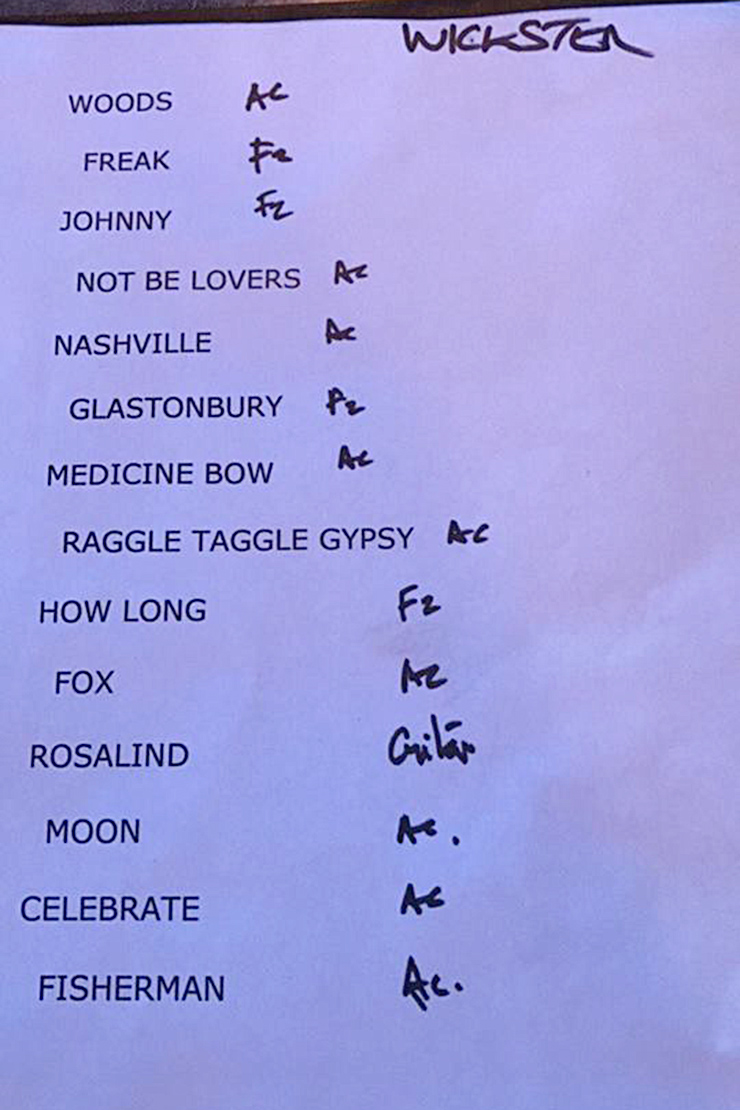 WICKSTER
WOODS AC
FREAK Fz
JOHNNY Fz
NOT BE LOVERS AC
NASHVILLE AC
GLASTONBURY Fz
MEDICINE BOW AC
RAGGLE TAGGLE GYPSY AC
HOW LONG Fz
FOX AZ
ROSALIND Guitar
MOON AC.
CELEBRATE AC
FISHERMAN AC.